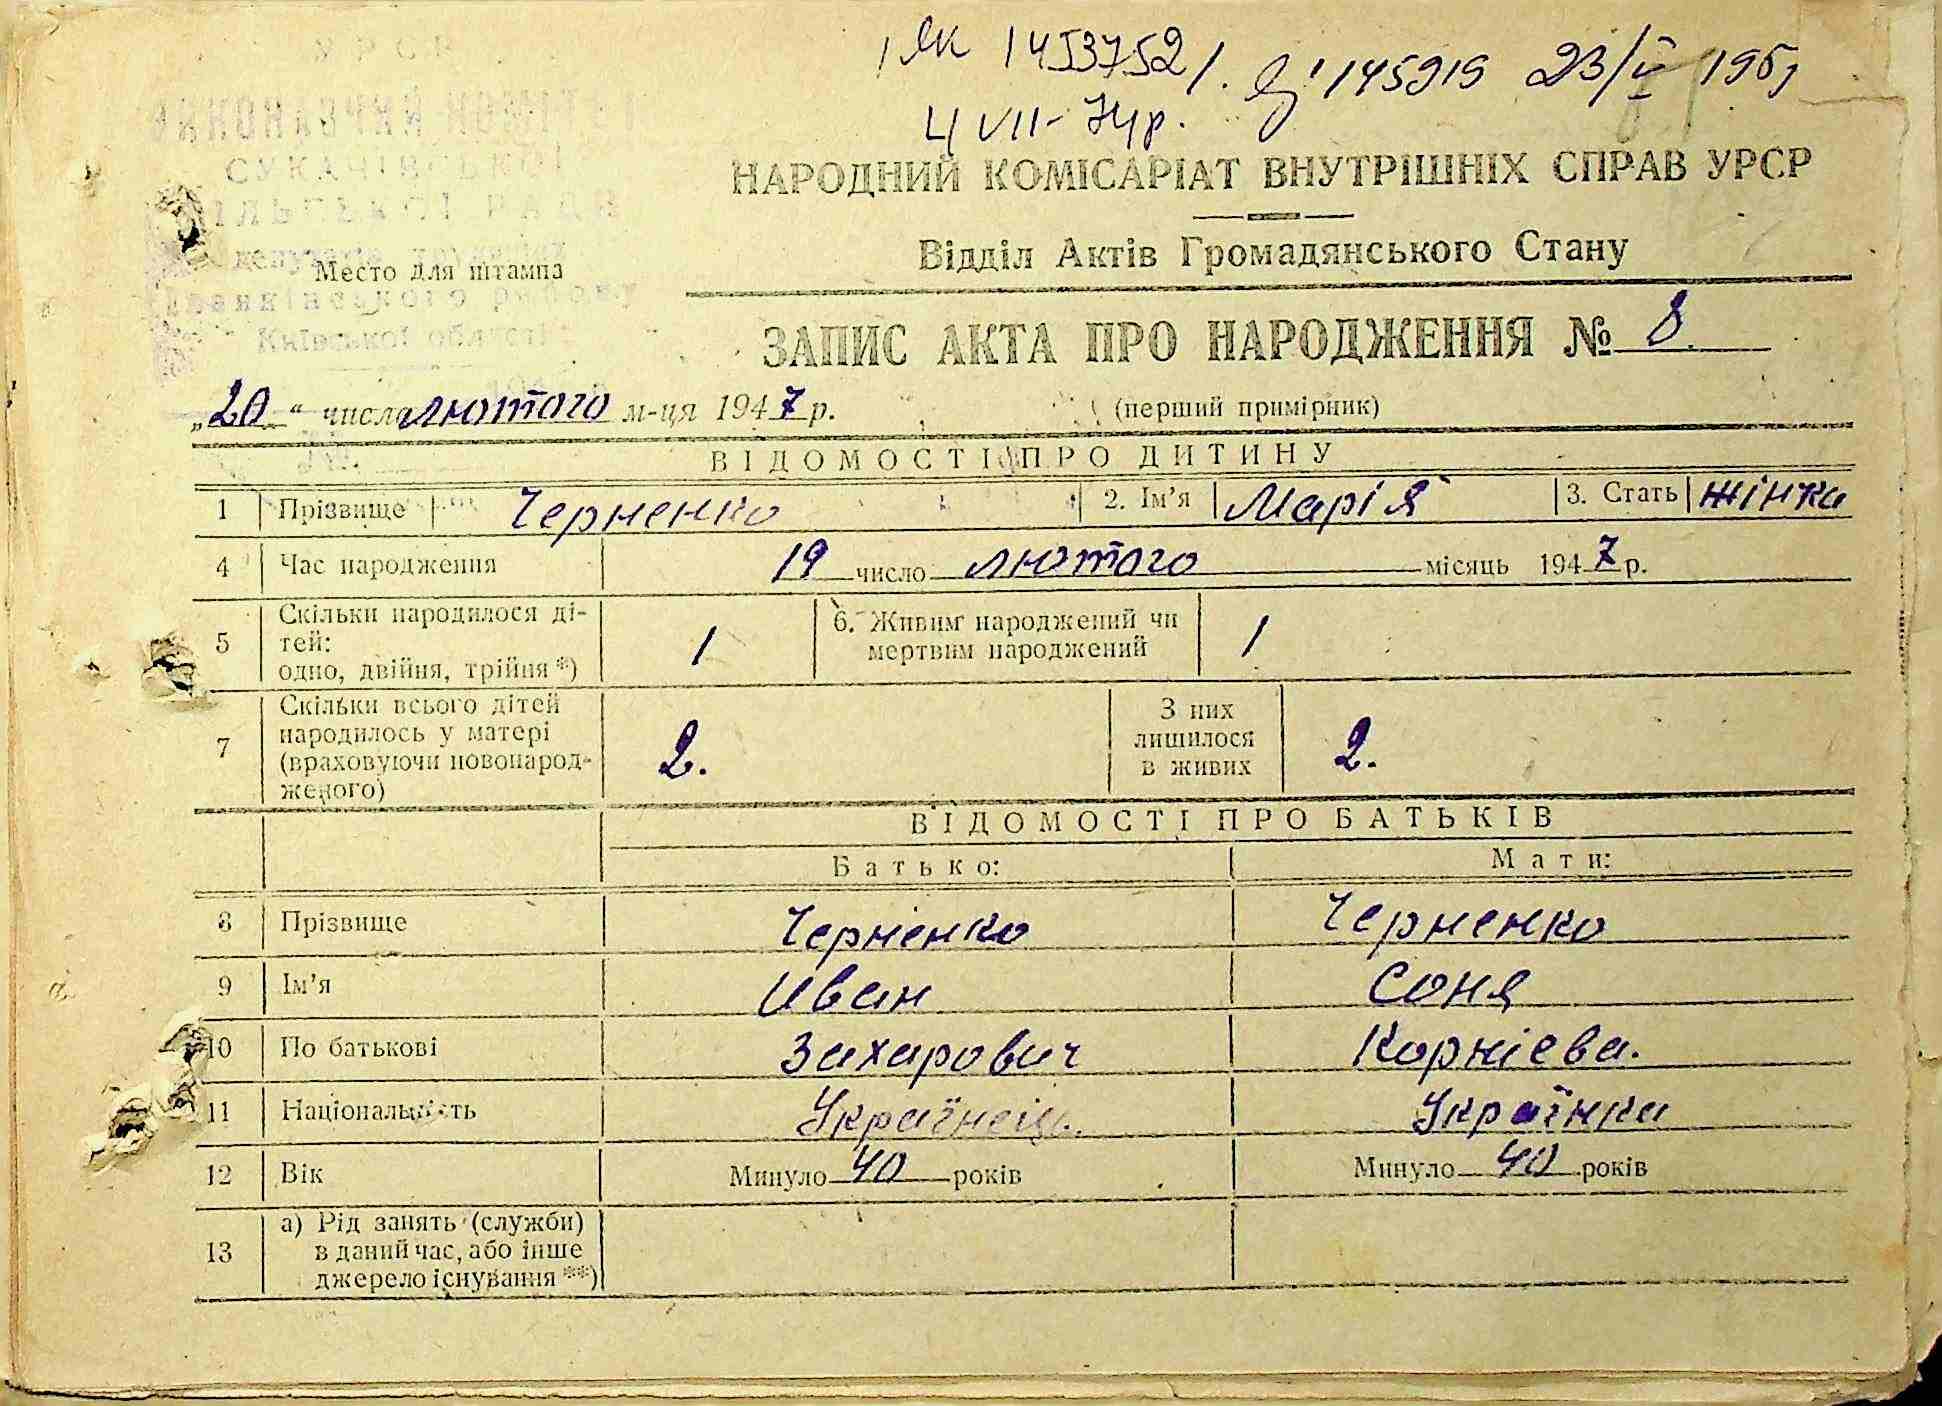 УРСР
ВИКОНАВЧИЙ КОМІТЕТ
СУКАЧІВСЬКОЇ
СІЛЬСЬКОЇ РАДИ
депутатів трудящих
Место для штампа
Іванківського району
Київської області
ЯК 1453752
145919 23/V 196
4 VII-74р.
НАРОДНИЙ КОМІСАРІАТ ВНУТРІШНІХ СПРАВ УРСР
Відділ Актів Громадянського Стану
ЗАПИС АКТА ПРО НАРОДЖЕННЯ № 8.
„20“ числа лютого м-ця 1947 р. (перший примірник)
ВІДОМОСТІ ПРО ДИТИНУ
1 Прізвище Черненко 2. Ім’я Марія 3. Стать жінка
4 Час народження 19 число лютого місяць 1947 р.
5 Скільки народилося ді-
тей:
одно, двійня, трійня *) 1 6. Живим народжений чи
мертвим народжений 1
7 Скільки всього дітей
народилось у матері
(враховуючи новонарод-
женого) 2. З них
лишилося
в живих 2.
ВІДОМОСТІ ПРО БАТЬКІВ
Батько: Мати:
8 Прізвище Черненко Черненко
9 Ім’я Иван Соня
10 По батькові Захарович Корнієва.
11 Національність Українець. Українка
12 Вік Минуло 40 років Минуло 40 років
13 а) Рід занять (служби)
в даний час, або інше
джерело існування **)